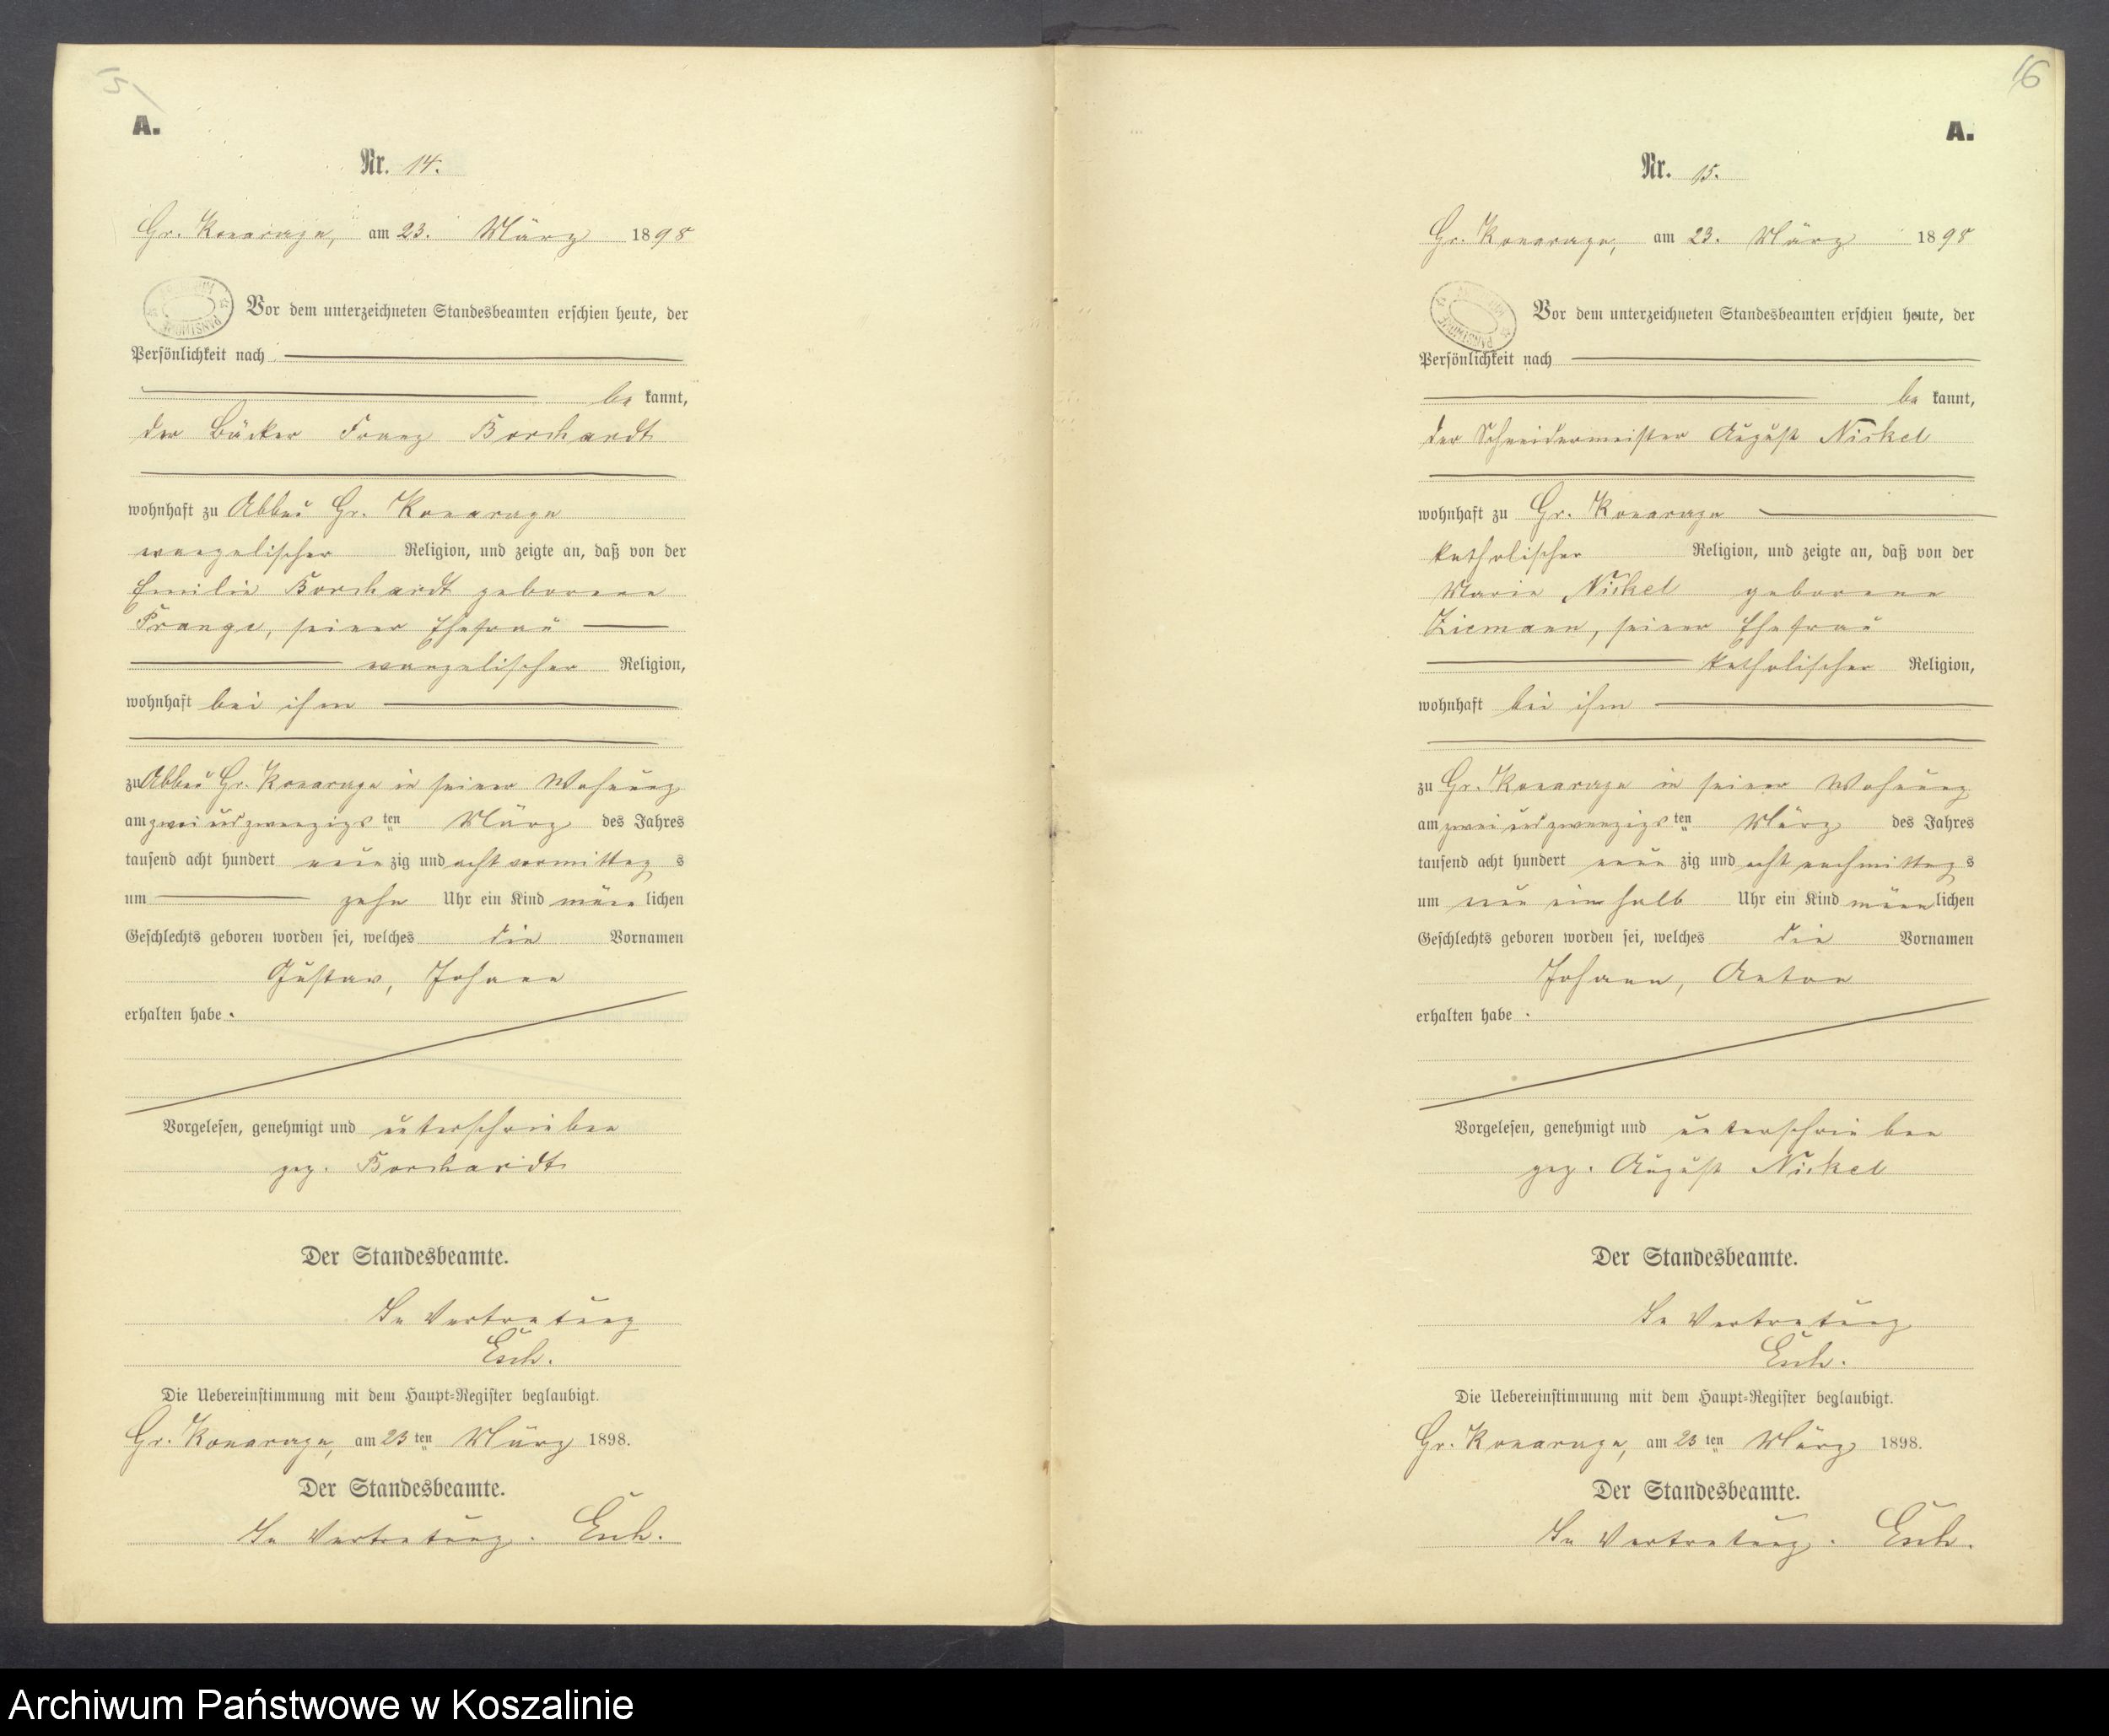 A.
Nr. 14.
Gr. Konarzyn, am 23. März 1898
Vor dem unterzeichneten Standesbeamten erschien heute, der
Persönlichkeit nach
be kannt,
der Bäcker Franz Borchardt
wohnhaft zu Abbau Gr. Konarzyn
evangelischer Religion, und zeigte an, daß von der
Emilie Borchardt geborene
Prange, seiner Ehefrau
evangelischer Religion,
wohnhaft bei ihm
zu Abbau Gr. Konarzyn in seiner Wohnung
am zwei und zwanzigs ten März des Jahres
tausend acht hundert neun zig und acht vormittag s
um zehn Uhr ein Kind männ lichen
Geschlechts geboren worden sei, welches die Vornamen
Gustav, Johann
erhalten habe.
Vorgelesen, genehmigt und unterschrieben
gez. Borchardt
Der Standesbeamte.
In Vertretung
Esch.
Die Uebereinstimmung mit dem Haupt-Register beglaubigt.
Gr. Konarzyn, am 23 ten März 1898.
Der Standesbeamte.
In Vertretung. Esch.
16
A.
Nr. 15.
Gr. Konarzyn, am 23. März 1898
Vor dem unterzeichneten Standesbeamten erschien heute, der
Persönlichkeit nach
be kannt,
der Schneidermeister August Nickel
wohnhaft zu Gr. Konarzyn
katholischer Religion, und zeigte an, daß von der
Marie Nickel geborene
Ziemann, seiner Ehefrau
katholischer Religion,
wohnhaft bei ihm
zu Gr. Konarzyn in seiner Wohnung
am zwei und zwanzigs ten März des Jahres
tausend acht hundert neun zig und acht nachmittag s
um ein halb Uhr ein Kind männ lichen
Geschlechts geboren worden sei, welches die Vornamen
Johann, Anton
erhalten habe.
Vorgelesen, genehmigt und unterschrieben
gez. August Nickel
Der Standesbeamte.
In Vertretung
Esch.
Die Uebereinstimmung mit dem Haupt-Register beglaubigt.
Gr. Konarzyn, am 23 ten März 1898.
Der Standesbeamte.
In Vertretung. Esch.
Archiwum Państwowe w Koszalinie